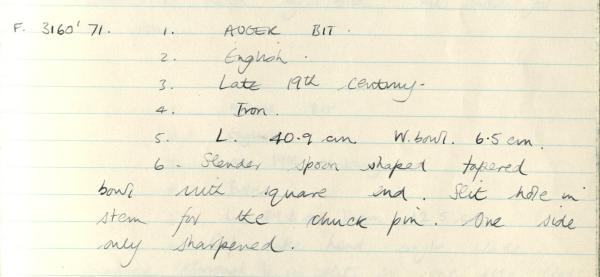 F. 3160' 71. 1. AUGER BIT.
2. English.
3. Late 19th century.
4. Iron.
5. L. 40.9 cm W. bowl. 6.5 cm.
6. Slender spoon shaped tapered
bowl with square end. Slit hole in
stem for the chuck pin. One side
only sharpened.